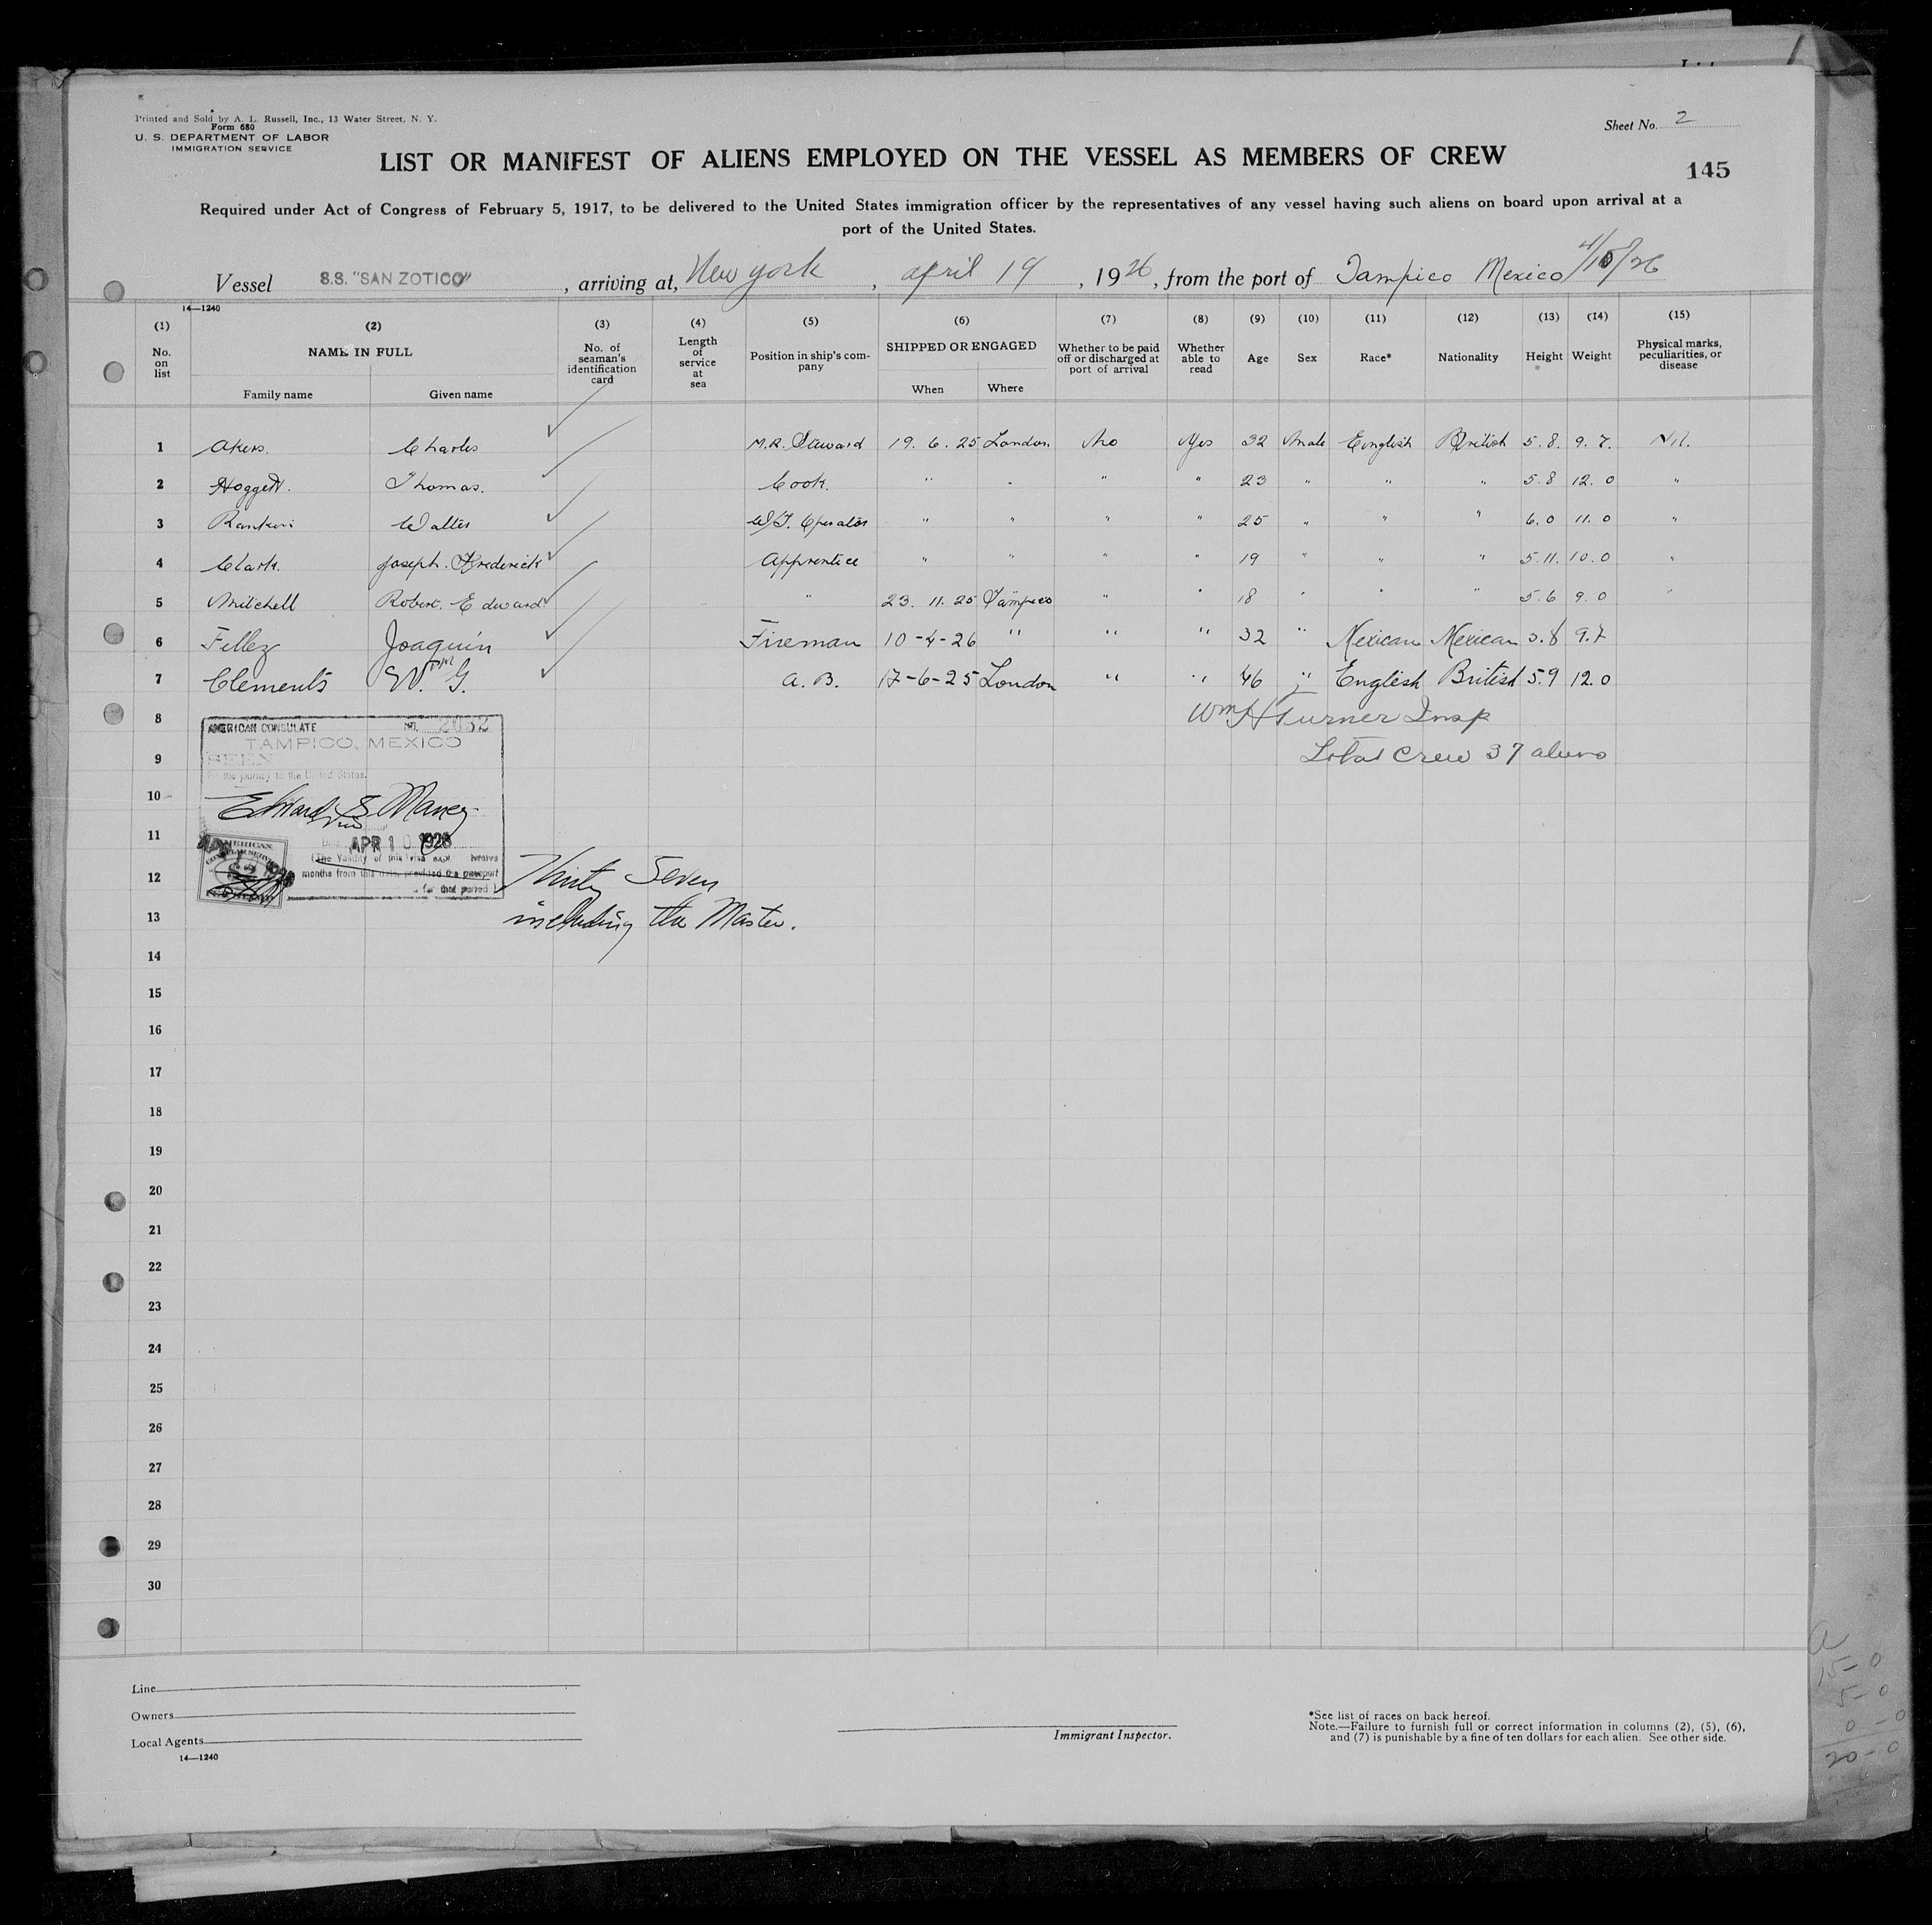 Printed and Sold by A. L. Russell, Inc., 13 Water Street, N. Y.
Form 680
U. S. DEPARTMENT OF LABOR
IMMIGRATION SERVICE
Sheet No. 2
LIST OR MANIFEST OF ALIENS EMPLOYED ON THE VESSEL AS MEMBERS OF CREW
145
Required under Act of Congress of February 5, 1917, to be delivered to the United States immigration officer by the representatives of any vessel having such aliens on board upon arrival at a
port of the United States.
Vessel S.S. "SAN ZOTICO", arriving at, New York, april 19, 1926, from the port of Tampico Mexico 4/10/26
14—1240
(1) (2) (3) (4) (5) (6) (7) (8) (9) (10) (11) (12) (13) (14) (15)
No. on list NAME IN FULL No. of seaman's identification card Length of service at sea Position in ship's company SHIPPED OR ENGAGED Whether to be paid off or discharged at port of arrival Whether able to read Age Sex Race* Nationality Height Weight Physical marks, peculiarities, or disease
Family name Given name When Where
1 Akers. Charles M.R. Steward 19. 6. 25 London No Yes 32 Male English British 5. 8. 9. 7. Nil.
2 Hoggett. Thomas. Cook. " " " " 23 " " " 5. 8 12. 0 "
3 Walter W/T. Operator " " " " 25 " " " 6. 0 11. 0 "
4 Clark. Joseph. Frederick Apprentice " " " " 19 " " " 5. 11. 10. 0 "
5 Mitchell Robert. Edward " 23. 11. 25 Tampico " " 18 " " " 5. 6 9. 0 "
6 Tellez Joaquin Fireman 10-4-26 " " " 32 " Mexican Mexican 5.8 9.7
7 Clements Wm G. A. B. 17-6-25 London " " 46 " English British 5.9 12.0
8 Wm H Turner Insp
AMERICAN CONSULATE NO. 2032
TAMPICO, MEXICO
9 Total Crew 37 aliens
SEEN
For the journey to the United States.
10
Edward S Maney
11
APR 10 1926
(The Validity of this visa expires twelve
months from this date, provided the passport
for that period)
AMERICAN
CONSULAR SERVICE
12 Thirty Seven
13 including the Master.
14
15
16
17
18
19
20
21
22
23
24
25
26
27
28
29
30
Line
Owners
Local Agents
14—1240
Immigrant Inspector.
*See list of races on back hereof.
Note.—Failure to furnish full or correct information in columns (2), (5), (6),
and (7) is punishable by a fine of ten dollars for each alien. See other side.
15-0
5-0
0-0
20-0